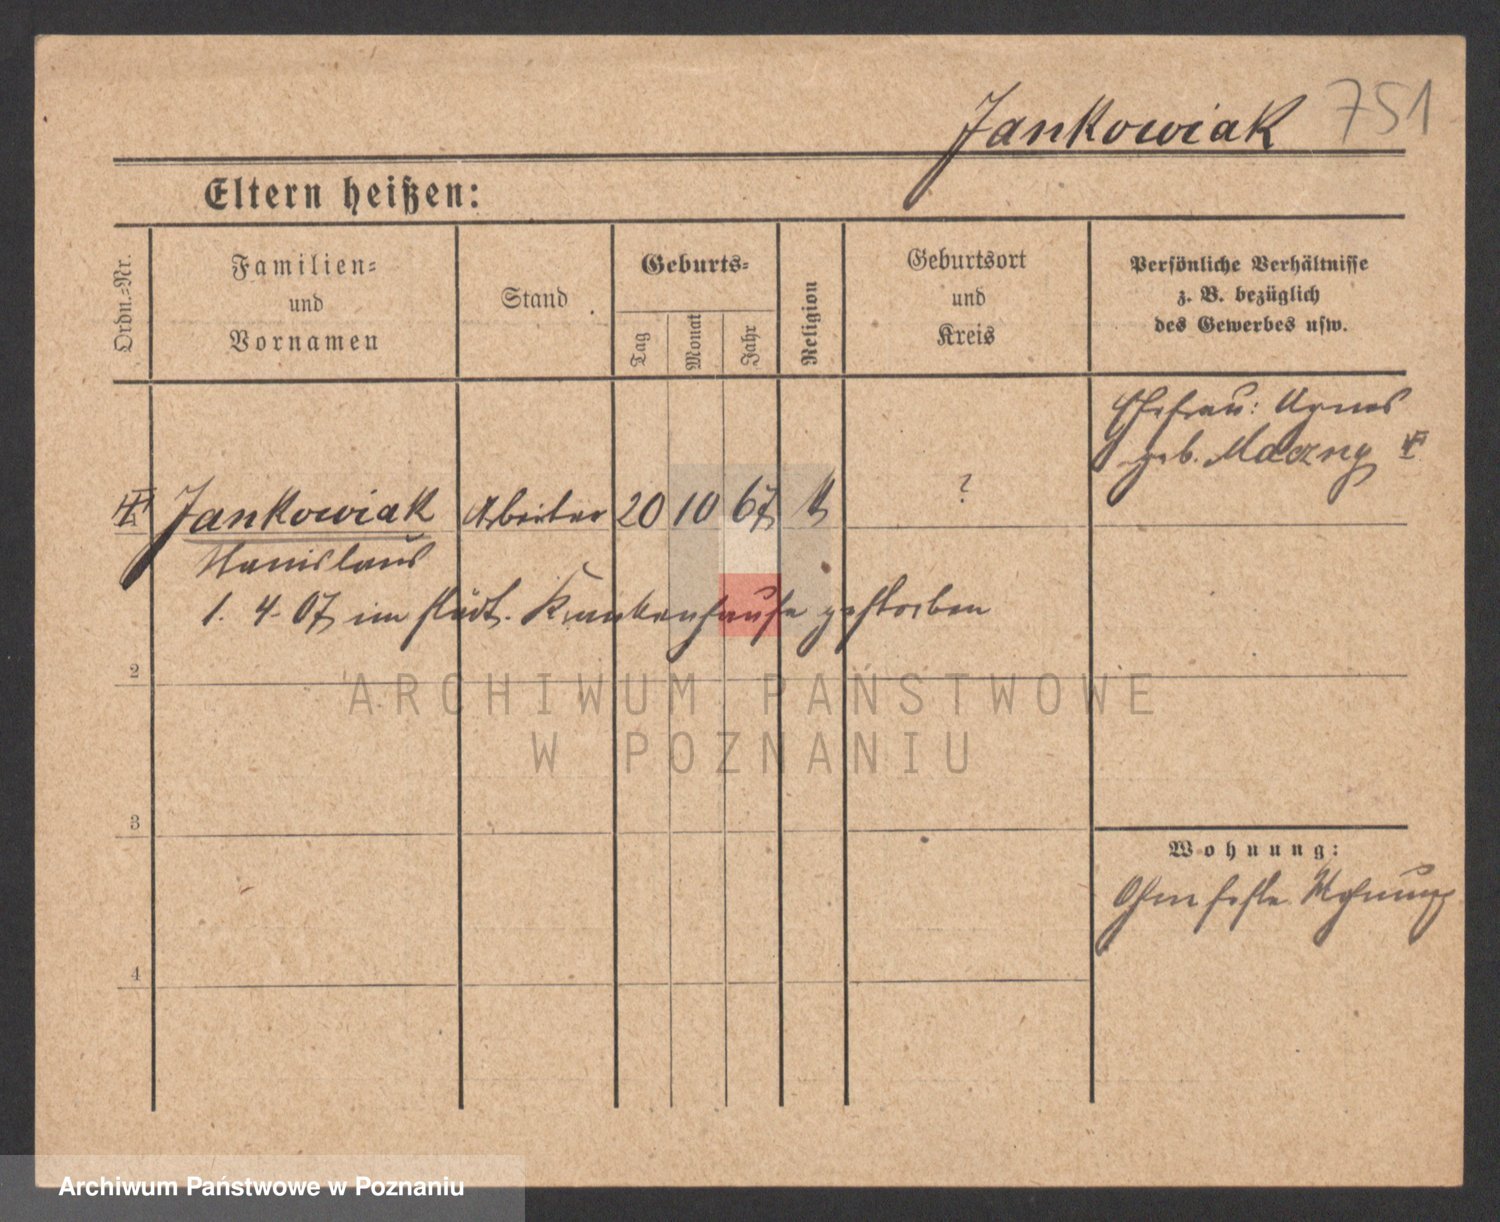 Jankowiak 751
Eltern heißen:
Ordn.-Nr.
Familien-
und
Vornamen
Stand
Geburts-
Tag
Monat
Jahr
Religion
Geburtsort
und
Kreis
Persönliche Verhältnisse
z. B. bezüglich
des Gewerbes usw.
Ehefrau: Agnes
geb. Maczny
Jankowiak Arbeiter 20 10 67 k ?
Stanislaus
1. 4. 07 im städt. Krankenhause gestorben
2
3
4
Wohnung:
Ohne feste Wohnung
ARCHIWUM PAŃSTWOWE
W POZNANIU
Archiwum Państwowe w Poznaniu